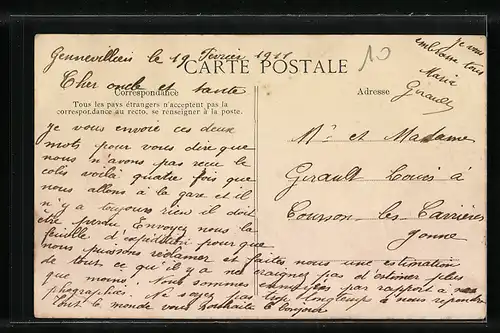 Gennevilliers le 19 Février 1911
CARTE POSTALE
10
je vous
embrasse tous
Maria
Girault
Cher oncle et tante
Correspondance
Tous les pays étrangers n'acceptent pas la
correspondance au recto, se renseigner à la poste.
Adresse
Je vous envoie ces deux
mots pour vous dire que
nous n'avons pas reçu le
colis voilà quatre fois que
nous allons à la gare et il
n'y a toujours rien il doit
être perdu Envoyez nous la
feuille d'expédition pour que
nous puissions réclamer et faites nous une estimation
de tout ce qu'il y a ne craignez pas d'estimer plus
que moins. Nous sommes par rapport à nos
phographies. Ne soyez pas trop longtemps à nous répondre
Tout le monde vous souhaite le bonjour
Mr et Madame
Girault Louis à
Courson-les-Carrières
Yonne